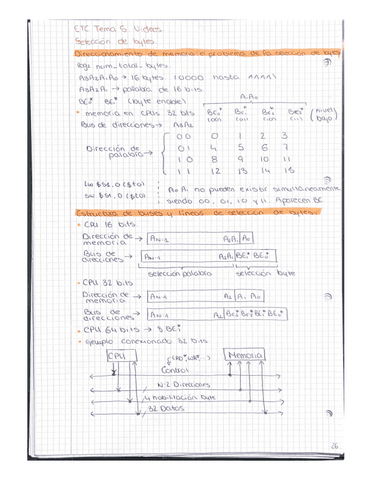 ETC Tema 5 Videos
Selección de bytes
Direccionamiento de memoria o problema de la selección de bytes
log2 num_total_bytes
A3A2A1A0 → 16 bytes (0000 hasta 1111)
A3A2A1 → palabra de 16 bits
BE1* BE0* (byte enable)
A1A0
• memoria en CPUs 32 bits
BE0* BE1* BE2* BE3* (nivel bajo)
Bus de direcciones → A3A2
Dirección de palabra →
0 0 0 1 2 3
0 1 4 5 6 7
1 0 8 9 10 11
1 1 12 13 14 15
lw $s1, 0($t0)
sw $s1, 0($t0)
A0 A1 no pueden existir simultáneamente
siendo 00, 01, 10 y 11. Aparecen BE
Estructura de buses y líneas de selección de bytes
• CPU 16 bits.
Dirección de memoria → AN-1 A2A1 A0
Bus de direcciones → AN-1 A2A1 BE1* BE0*
selección palabra selección byte
• CPU 32 bits
Dirección de memoria → AN-1 A2 A1 A0
Bus de direcciones → AN-1 A2 BE3* BE2* BE1* BE0*
• CPU 64 bits → 8 BE*
• ejemplo conexionado 32 bits
CPU Memoria
Control
N-2 Direcciones
4 habilitación byte
32 Datos
26